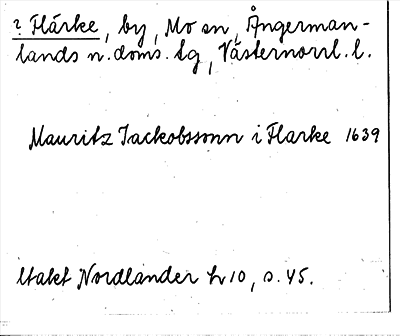 ? Flärke, by, Mo sn, Ångerman-
lands n. doms. lg, Västernorrl. l.
Mauritz Jackobssonn i Flarke 1639
Utakt Nordlander h 10, s. 45.